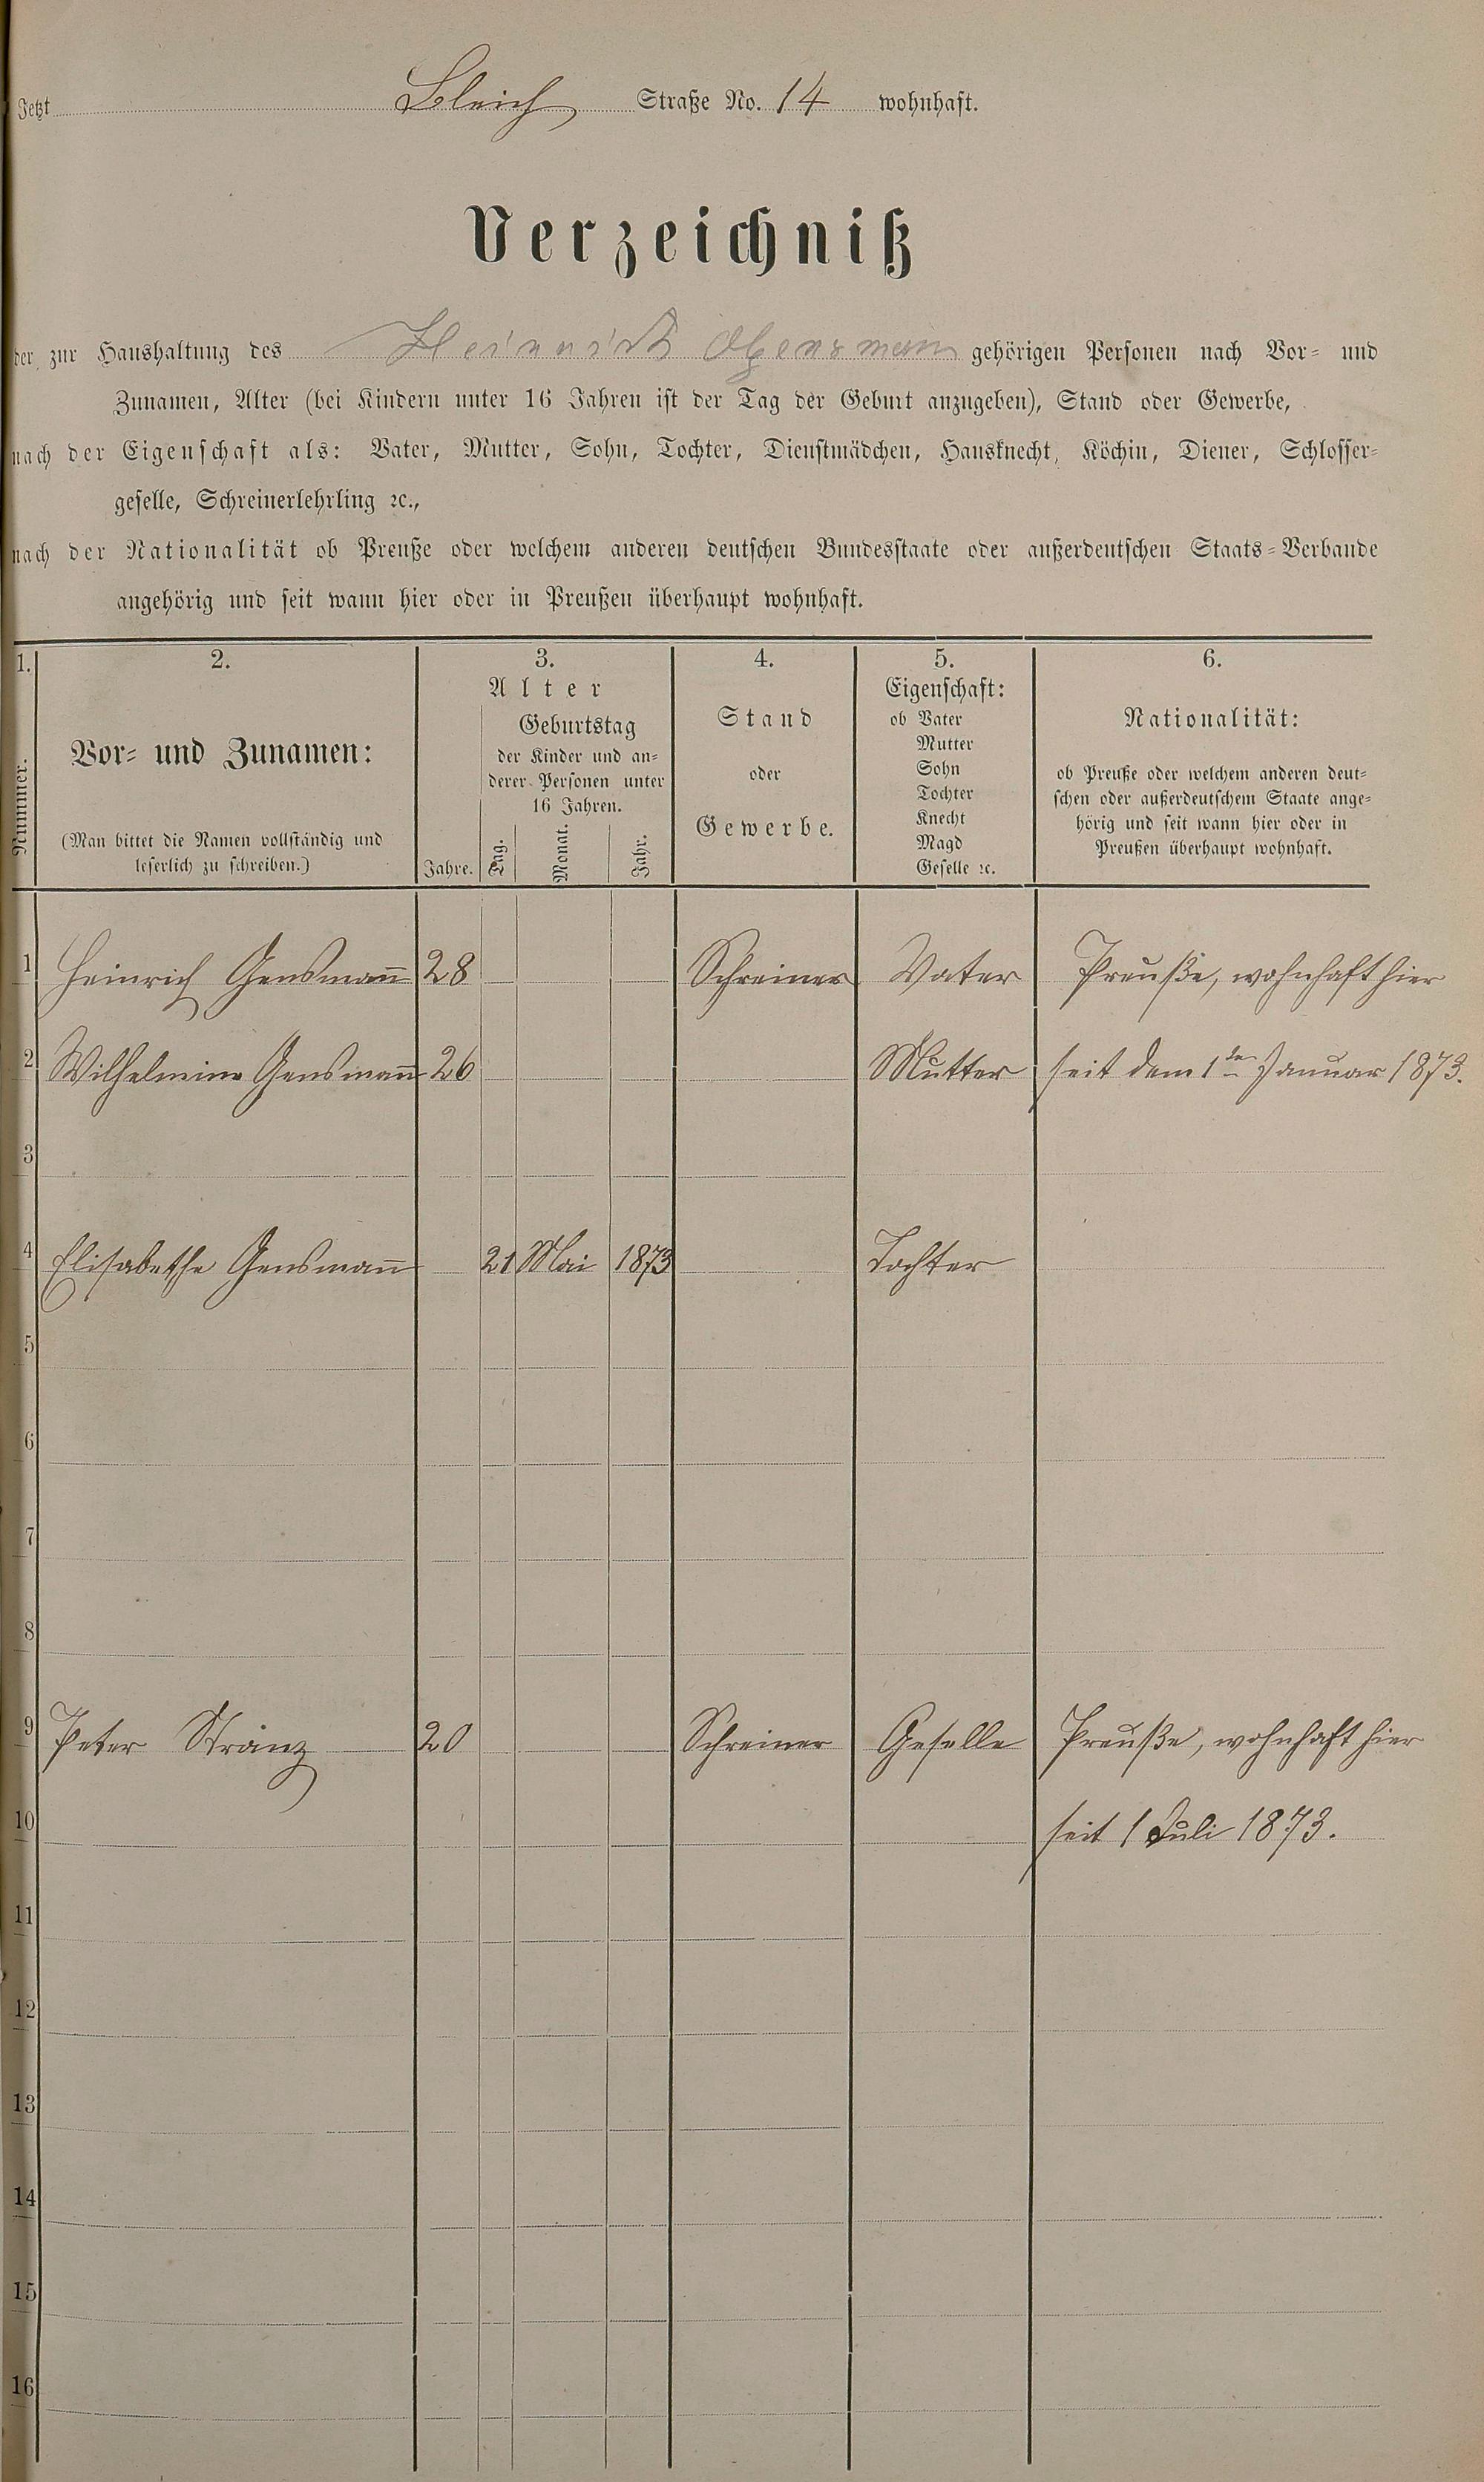 Jetzt Bleich Straße No. 14 wohnhaft.
Verzeichniß
der zur Haushaltung des Heinrich Gensman gehörigen Personen nach Vor- und
Zunamen, Alter (bei Kindern unter 16 Jahren ist der Tag der Geburt anzugeben), Stand oder Gewerbe,
nach der Eigenschaft als: Vater, Mutter, Sohn, Tochter, Dienstmädchen, Hausknecht, Köchin, Diener, Schlosser-
geselle, Schreinerlehrling ꝛc.,
nach der Nationalität ob Preuße oder welchem anderen deutschen Bundesstaate oder außerdeutschen Staats-Verbande
angehörig und seit wann hier oder in Preußen überhaupt wohnhaft.
1. 2. 3. 4. 5. 6.
Nummer.
Vor- und Zunamen:
(Man bittet die Namen vollständig und
leserlich zu schreiben.)
Alter
Jahre.
Geburtstag
der Kinder und an-
derer Personen unter
16 Jahren.
Tag. Monat. Jahr.
Stand
oder
Gewerbe.
Eigenschaft:
ob Vater
Mutter
Sohn
Tochter
Knecht
Magd
Geselle ꝛc.
Nationalität:
ob Preuße oder welchem anderen deut-
schen oder außerdeutschem Staate ange-
hörig und seit wann hier oder in
Preußen überhaupt wohnhaft.
1 Heinrich Gensmann̅ 28 Schreiner Vater Preuße, wohnhaft hier
2 Wilhelmine Gensmann̅ 26 Mutter seit dem 1ten Januar 1873.
3
4 Elisabethe Gensmann̅ 21 Mai 1873 Tochter
5
6
7
8
9 Peter Stranz 20 Schreiner Geselle Preuße, wohnhaft hier
10 seit 1 Juli 1873.
11
12
13
14
15
16